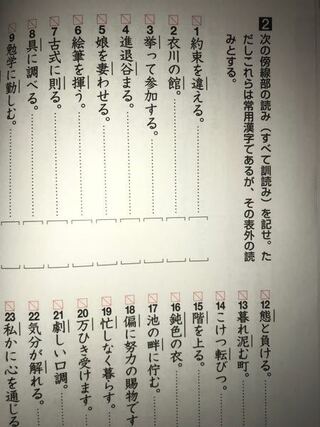 2 次の傍線部の読み(すべて訓読み)を記せ。た
だしこれらは常用漢字であるが、その表外の読
みとする。
1 約束を違える。
2 衣川の館。
3 挙って参加する。
4 進退谷まる。
5 娘を妻わせる。
6 絵筆を揮う。
7 古式に則る。
8 具に調べる。
9 勉学に勤しむ。
12 態と負ける。
13 暮れ泥む町。
14 こけつ転びつ。
15 階を上る。
16 鈍色の衣。
17 池の畔に佇む。
18 偏に努力の賜物です
19 忙しなく暮らす。
20 万ひき受けます。
21 劇しい口調。
22 気分が解れる。
23 私かに心を通じる